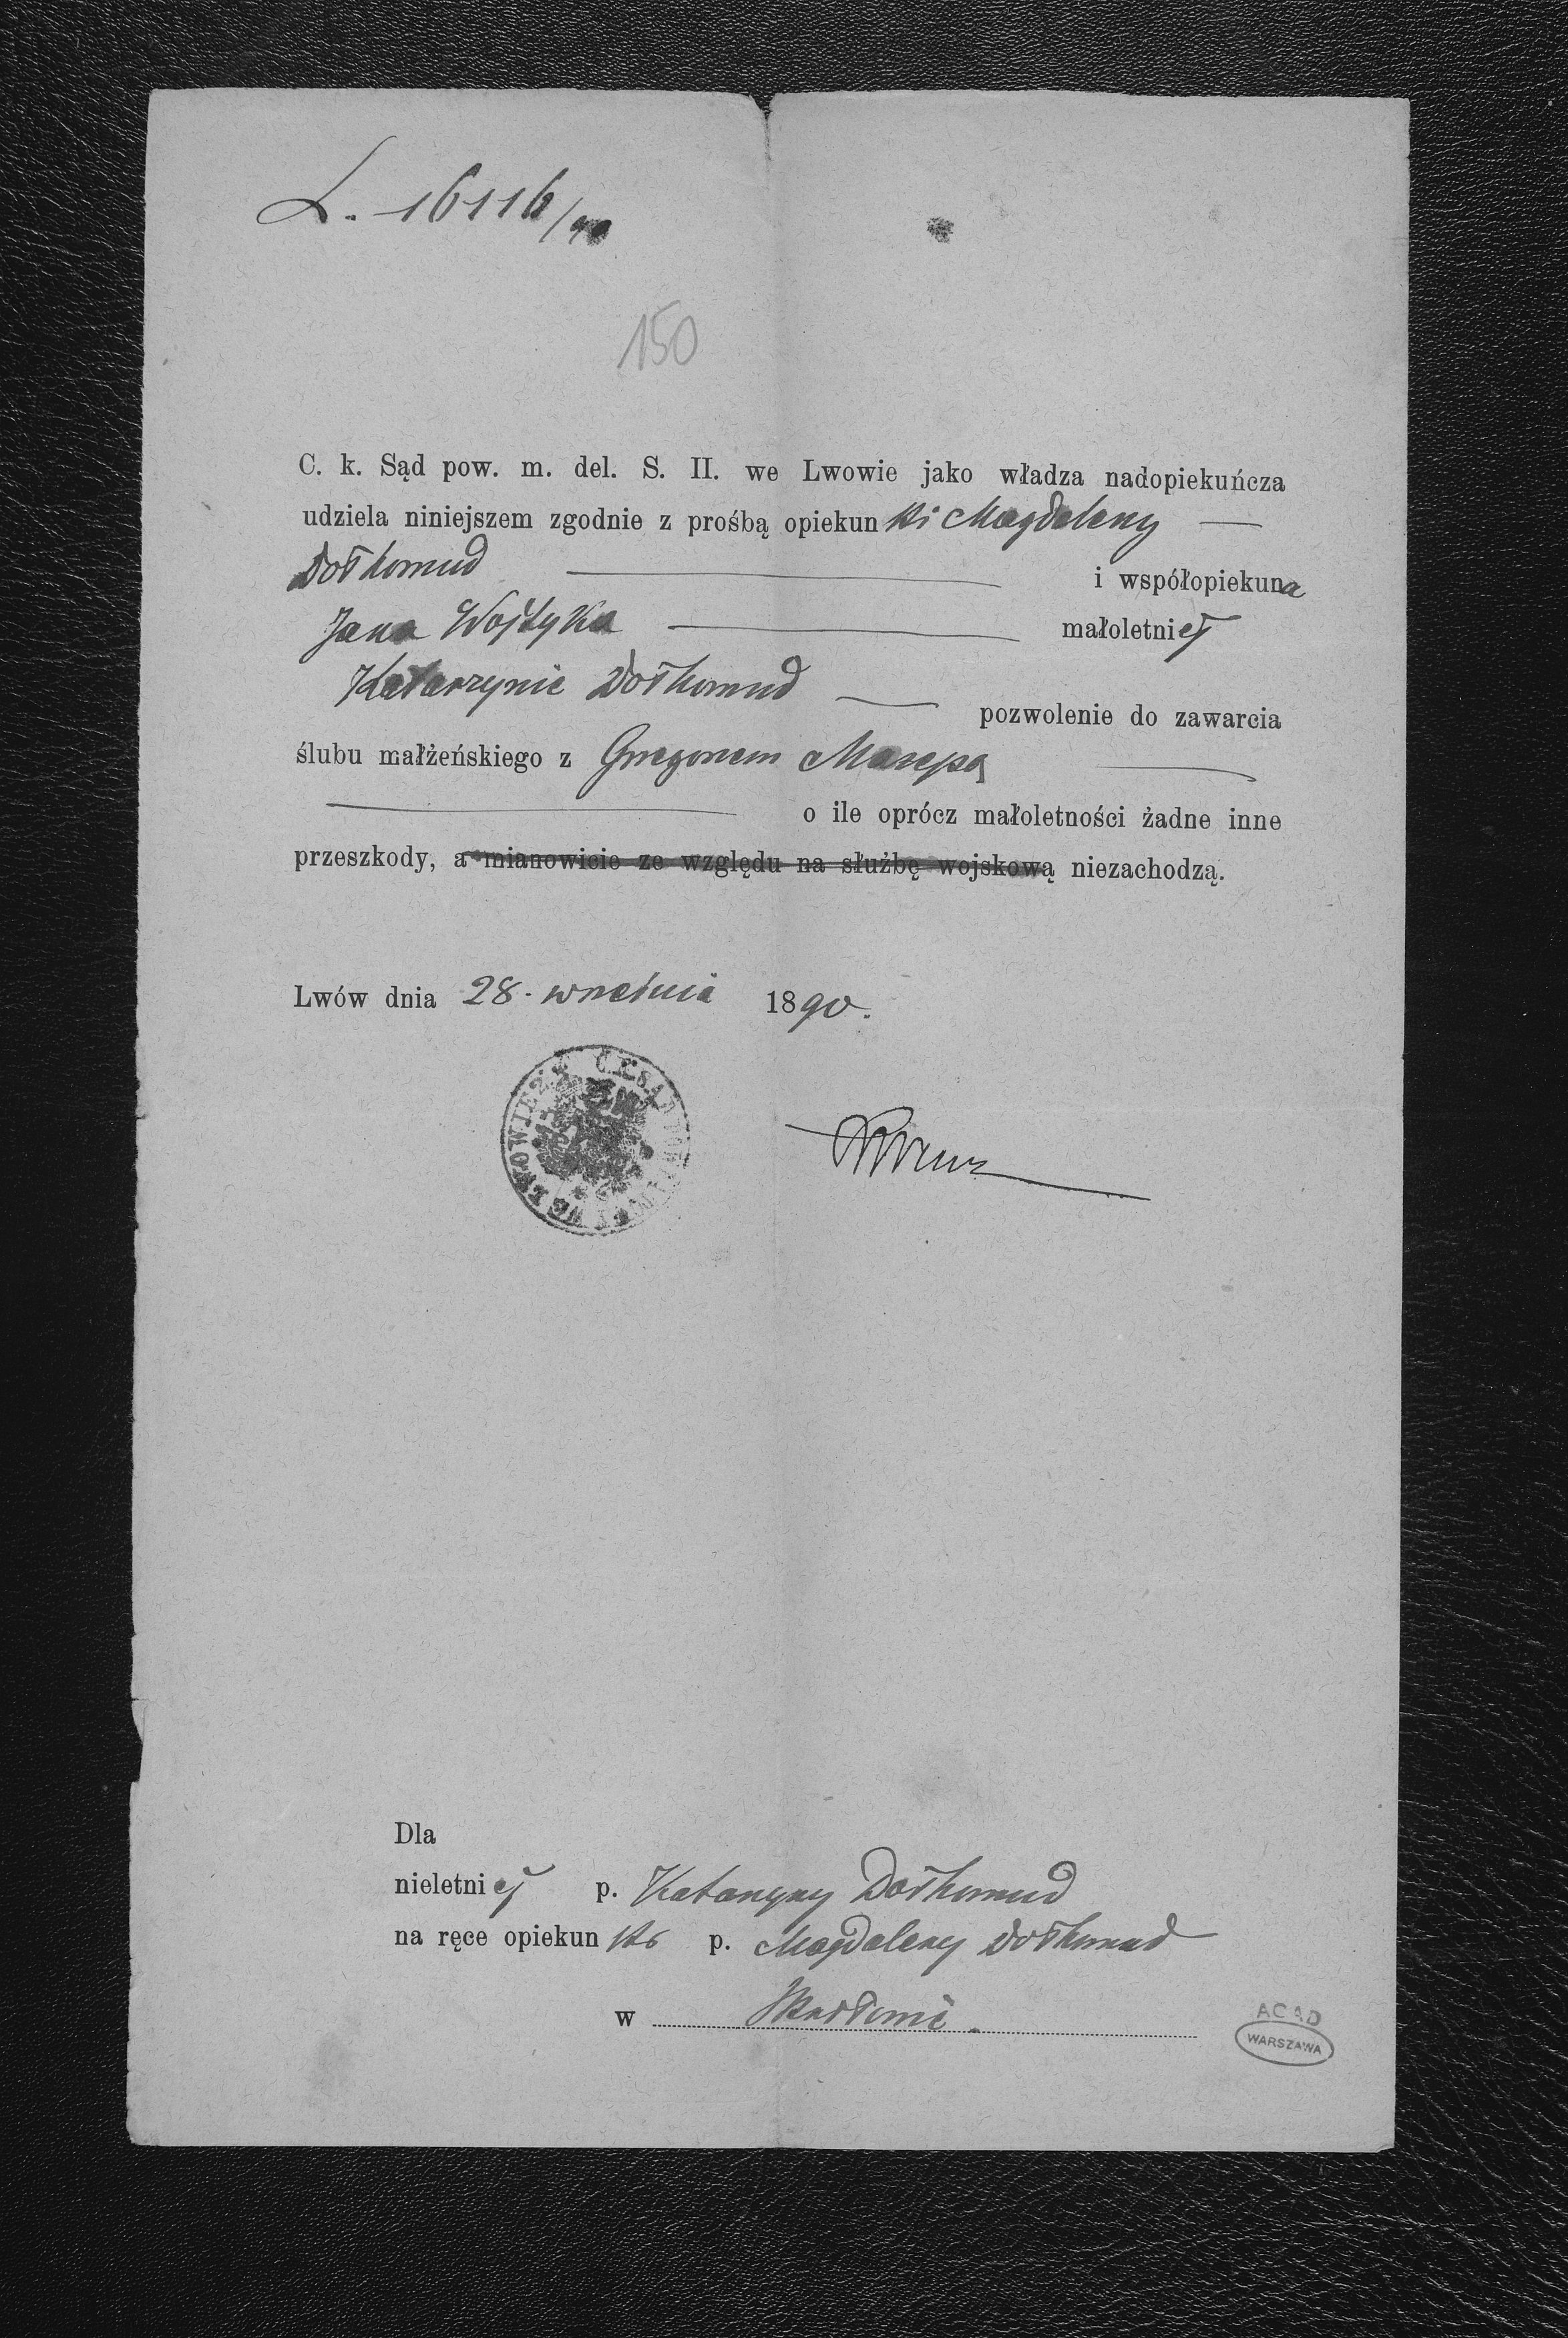 L. 16116/90
150
C. k. Sąd pow. m. del. S. II. we Lwowie jako władza nadopiekuńcza
udziela niniejszem zgodnie z prośbą opiekunki Magdaleny
Dołhomud i współopiekuna
Jana Wojtyka małoletniej
Katarzynie Dołhomud pozwolenie do zawarcia
ślubu małżeńskiego z Grzegorzem Mazepą
o ile oprócz małoletności żadne inne
przeszkody, a mianowicie ze względu na służbę wojskową niezachodzą.
Lwów dnia 28. września 1890.
Dla
nieletniej p. Katarzyny Dołhomud
na ręce opiekunki p. Magdaleny Dołhomud
w
ACAD
WARSZAWA